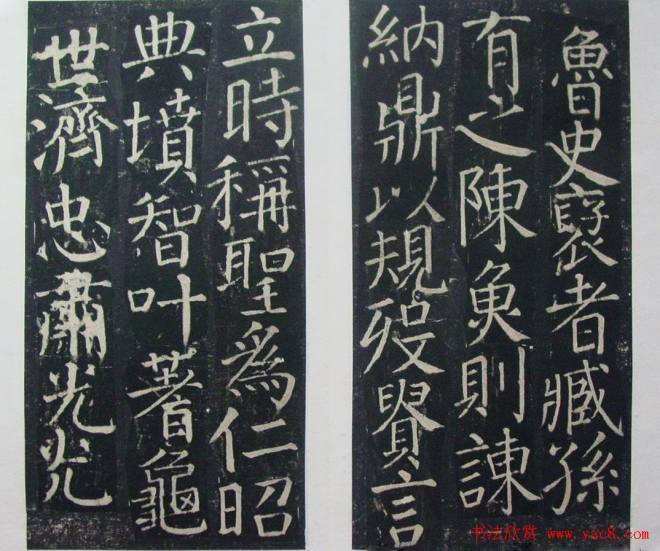 魯史褒者臧孫
有之陳魚則諫
納鼎以規歿貴言
立時稱聖爲仁昭
典墳智叶蓍龜
世濟忠肅光光
书法欣赏 www.yac8.com